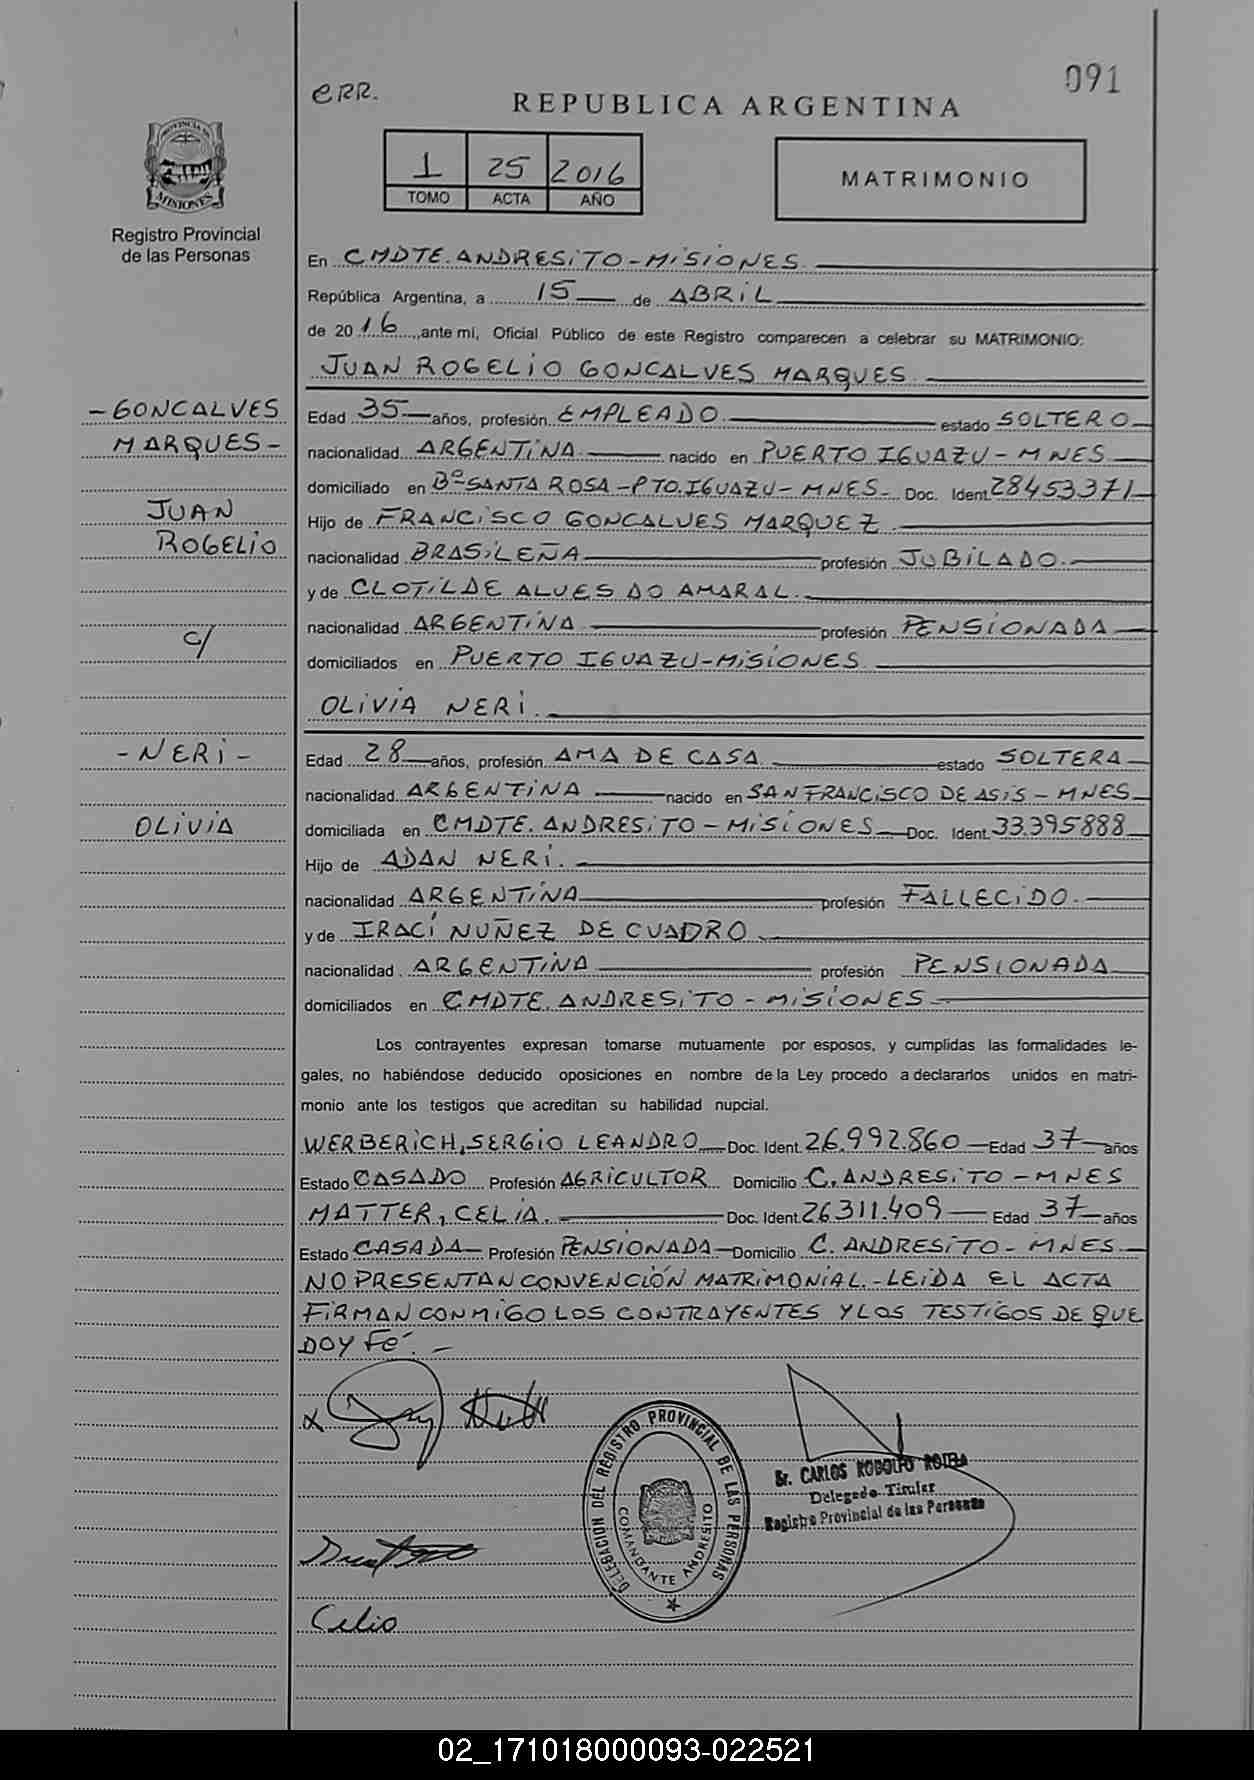 091
ERR.
REPUBLICA ARGENTINA
1 25 2016
TOMO ACTA AÑO
MATRIMONIO
PROVINCIA DE MISIONES
Registro Provincial
de las Personas
En CMDTE. ANDRESITO - MISIONES
República Argentina, a 15 de ABRIL
de 2016, ante mi, Oficial Público de este Registro comparecen a celebrar su MATRIMONIO:
JUAN ROGELIO GONCALVES MARQUES
- GONCALVES
MARQUES -
JUAN
ROGELIO
c/
- NERI -
OLIVIA
Edad 35 años, profesión EMPLEADO estado SOLTERO
nacionalidad ARGENTINA nacido en PUERTO IGUAZU - MNES
domiciliado en Bº SANTA ROSA - PTO. IGUAZU - MNES - Doc. Ident. 28453371
Hijo de FRANCISCO GONCALVES MARQUEZ
nacionalidad BRASILEÑA profesión JUBILADO.
y de CLOTILDE ALVES DO AMARAL.
nacionalidad ARGENTINA profesión PENSIONADA
domiciliados en PUERTO IGUAZU - MISIONES
OLIVIA NERI.
Edad 28 años, profesión AMA DE CASA estado SOLTERA
nacionalidad ARGENTINA nacido en SAN FRANCISCO DE ASIS - MNES
domiciliada en CMDTE. ANDRESITO - MISIONES Doc. Ident. 33.395888
Hijo de ADAN NERI.
nacionalidad ARGENTINA profesión FALLECIDO.
y de IRACÍ NUÑEZ DE CUADRO
nacionalidad ARGENTINA profesión PENSIONADA
domiciliados en CMDTE. ANDRESITO - MISIONES
Los contrayentes expresan tomarse mutuamente por esposos, y cumplidas las formalidades le-
gales, no habiéndose deducido oposiciones en nombre de la Ley procedo a declararlos unidos en matri-
monio ante los testigos que acreditan su habilidad nupcial.
WERBERICH, SERGIO LEANDRO Doc. Ident. 26.992.860 Edad 37 años
Estado CASADO Profesión AGRICULTOR Domicilio C. ANDRESITO - MNES
MATTER, CELIA. Doc. Ident. 26311.409 Edad 37 años
Estado CASADA Profesión PENSIONADA Domicilio C. ANDRESITO - MNES.
NO PRESENTAN CONVENCIÓN MATRIMONIAL. - LEIDA EL ACTA
FIRMAN CONMIGO LOS CONTRAYENTES Y LOS TESTIGOS DE QUE
DOY FE. -
DELEGACION DEL REGISTRO PROVINCIAL DE LAS PERSONAS
COMANDANTE ANDRESITO
Sr. CARLOS RODOLFO
Delegado Titular
Registro Provincial de las Personas
Celia
02_171018000093-022521